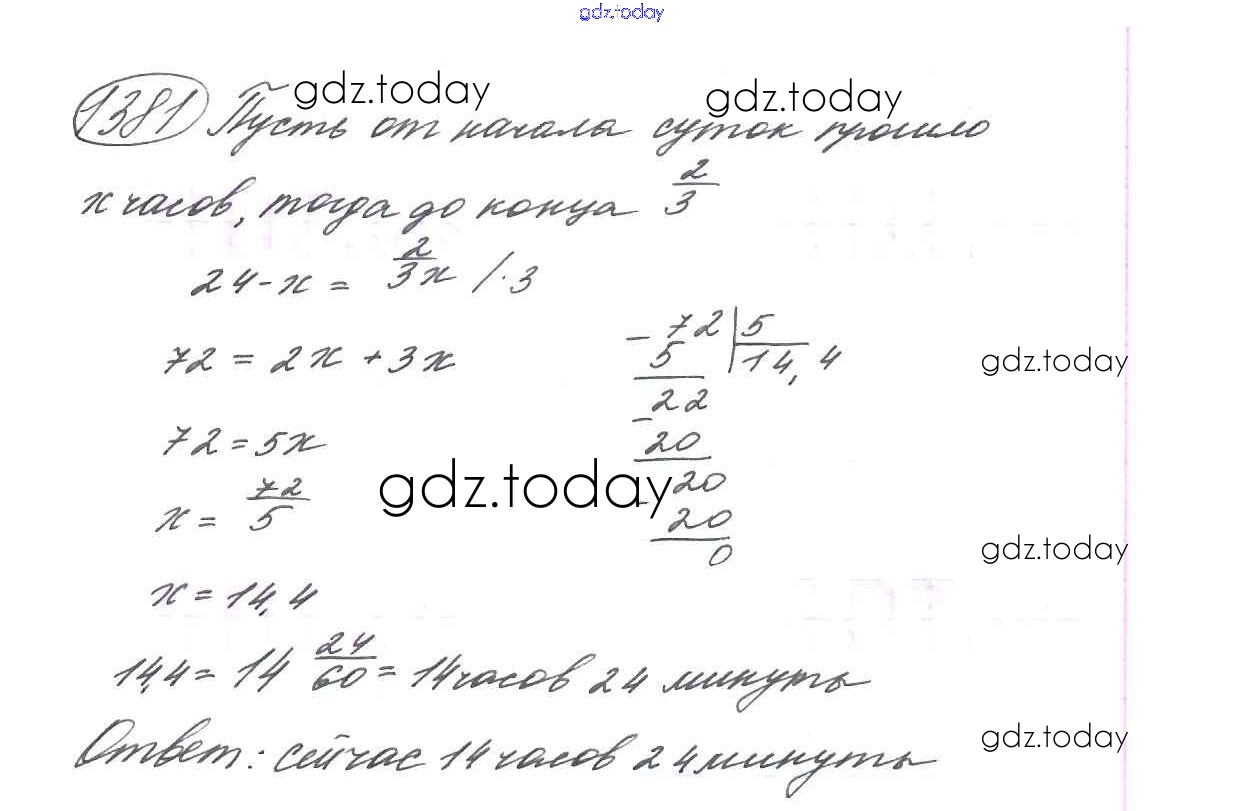 gdz.today
gdz.today gdz.today
1381 Пусть от начала суток прошло
x часов, тогда до конца 2/3
24 - x = 2/3 x / · 3
72 = 2x + 3x
72 = 5x
x = 72/5
x = 14,4
- 72 | 5
5 14,4
- 22
20
- 20
20
0
gdz.today
gdz.today
gdz.today
14,4 = 14 24/60 = 14 часов 24 минуты
gdz.today
Ответ: сейчас 14 часов 24 минуты